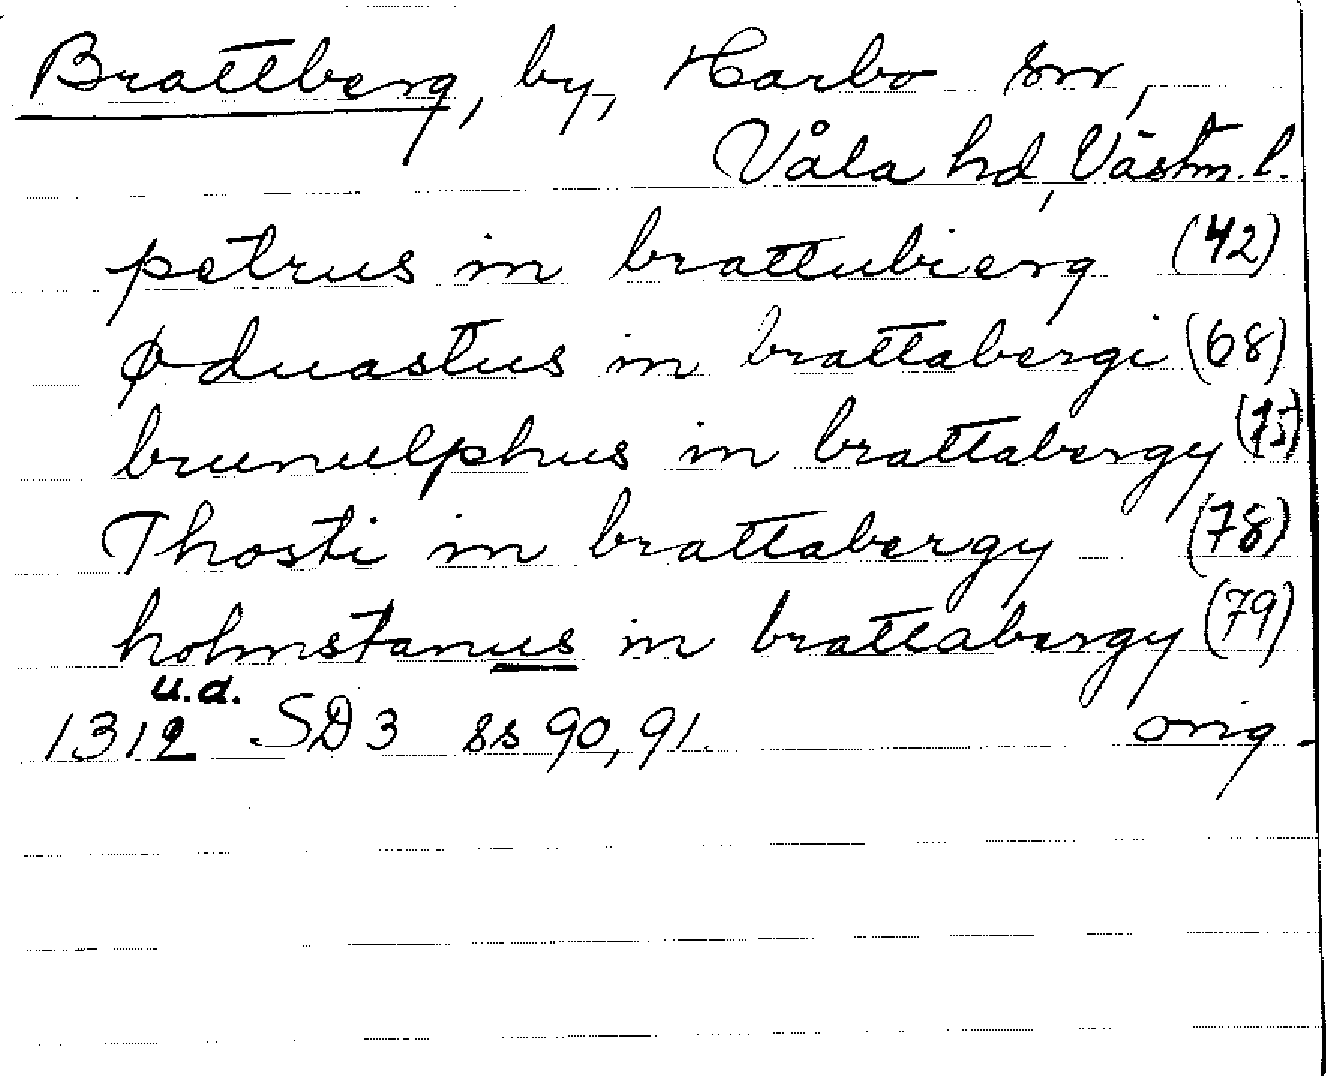 Brattberg, by, Harbo sn,
Våla hd, Västm.l.
petrus in brattubierg (42)
Øduastus in brattabergi (68)
brunulphus in brattabergy (75)
Thosti in brattabergy (78)
holmstanus in brattabergy (79)
u.d.
1312 SD 3 ss 90, 91. orig.